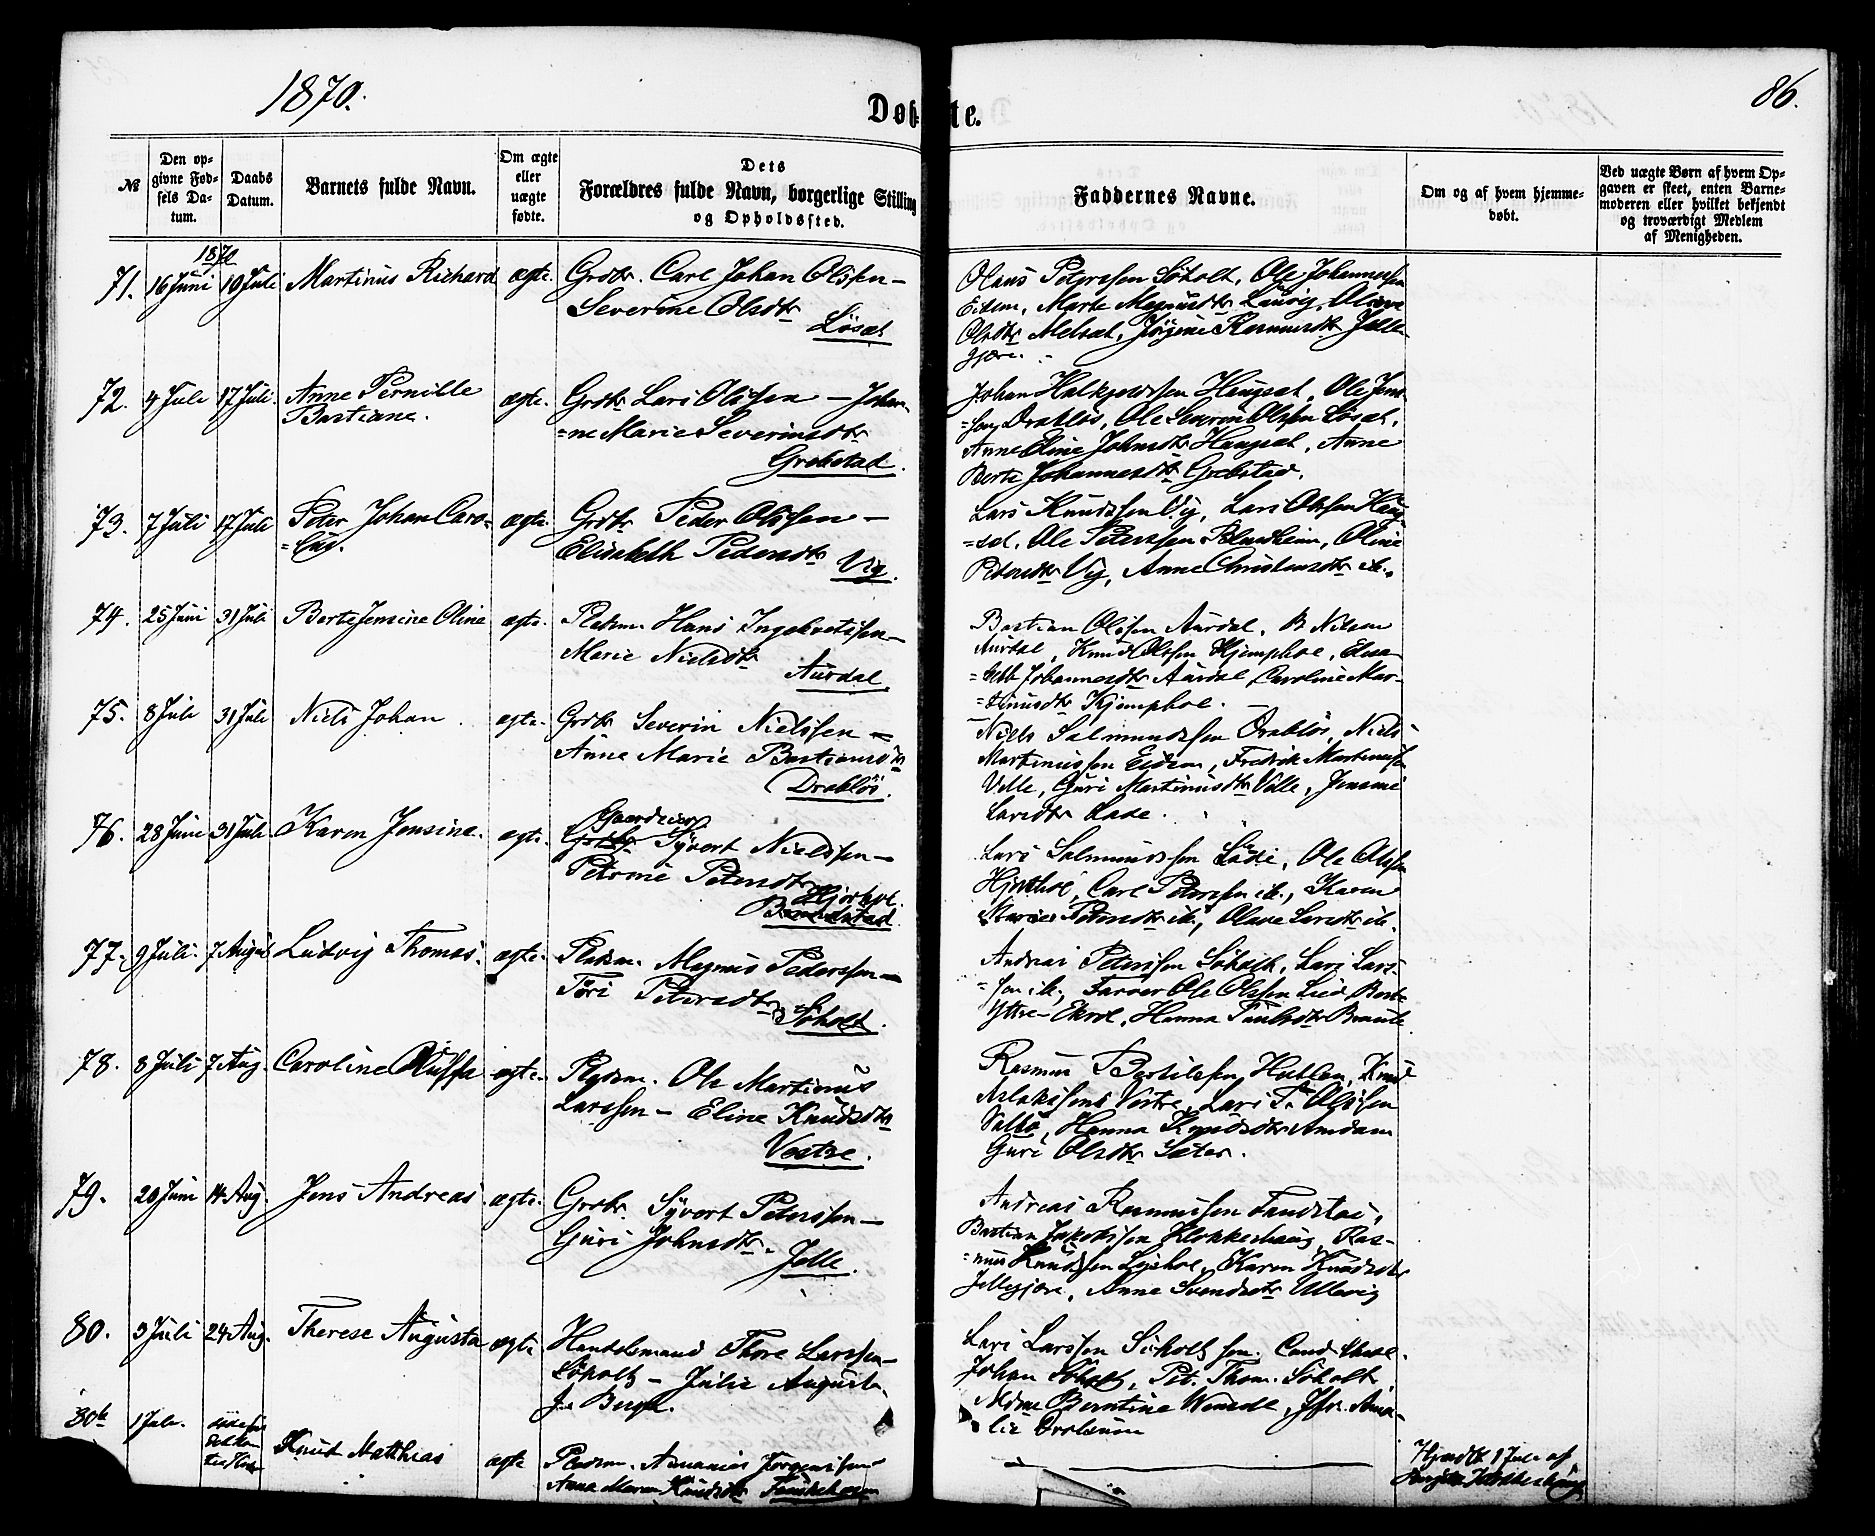 1870.
Døbte.
86.
№
Den opgivne Fødsels Datum.
Daabs Datum.
Barnets fulde Navn.
Om ægte eller uægte fødte.
Dets Forældres fulde Navn, borgerlige Stilling og Opholdssted.
Faddernes Navne.
Om og af hvem hjemmedøbt.
Ved uægte Børn af hvem Opgaven er skeet, enten Barnemoderen eller hvilket bekjendt og troværdigt Medlem af Menigheden.
1870
71. 16 Juni 10 Juli Martinus Richard ægte. Grdbr. Carl Johan Olssen –
Severine Olsdtr
Løset
Olaus Peterssen Søholt, Ole Johannessen
Eidem, Marte Magnusdtr
Olsdtr Melset, Jørgine Rasmusdtr Jelle
gjære.
72. 4 Juli 17 Juli. Anne Pernille
Bastiane.
ægte. Grdbr Lars Olssen – Johan-
=ne Marie Severinsdtr
Grebstad.
Johan Haugset, Ole Jens-
=sen Drabløs, Ole Severin Olssen Løset,
Anne Eline Johnsdtr Haugset, Anne
Berte Johannesdtr Grebstad.
73. 7 Juli 17 Juli Peter Johan Caro-
=lus.
ægte. Grdbr Peder Olssen –
Elisabeth Pedersdtr
Vig.
Lars Knudssen Vig, Lars Olssen Haug-
=set, Ole Peterssen Blindheim, Oline
Petersdtr Vig, Anne Christensdtr ib.
74. 25 Juni 31 Juli Berte Jensine Oline ægte. Pladsm. Hans Ingebretssen –
Marie Nielsdtr
Aurdal
Bastian Olssen Aurdal, B Nilsen
Aurdal, Knud Olssen Kjemphol, Elisa-
=beth Johannesdtr Aurdal, Caroline Mar-
=tinusdtr Kjemphol. –
75. 8 Juli 31 Juli Niels Johan ægte. Grdbr Severin Nielssen –
Anne Marie Bastiansdtr
Drabløs.
Niels Salmundssen Drabløs, Niels
Martinussen Eidem, Fredrik Martinussen
Velle, Guri Martinusdtr Velle, Jensine
Larsdtr Lade.
76. 28 Juni 31 Juli Karen Jensine. ægte. Gaardeier
Grdbr Syvert Nielssen –
Petrine Petersdtr
Hjorthol.
Lars Salmundssen Lade, Ole Olssen
Hjorthol, Carl Peterssen ib., Karen
Marie Petersdtr ib., Olave Larsdtr ib.
77. 9 Juli. 7 August Ludvig Thomas. ægte. Pladsm. Magnus Pederssen –
Peteresdtr
Søholt.
Andreas Peterssen Søholt, Lars Lars-
=sen ib., Farver Ole Olssen Lied, Berte
Yttre-Ekrol, Hanna Paulsdtr Braute
78. 8 Juli 7 Aug. Caroline Olussa ægte. Pladsm. Ole Martinus
Larssen – Eline Knudsdtr
Vestre.
Rasmus Bertilssen Hatlen, Knud
Aslakssens Vestre, Lars P. Olssen
Valbø, Hanna Knudsdtr Amdam
Guri Olsdtr Sæter.
79. 20 Juni 14 Aug. Jens Andreas ægte. Grdbr. Syvert Peterssen –
Guri Johnsdtr.
Jelle.
Andreas Rasmussen Tandstad,
Bastian Jakobssen Klokkerhaug, Ras-
=mus Knudssen Lyshol, Karen Knudsdtr
Jellegjære, Anne Svendsdtr Ullavig
80. 3 Juli 24 Aug. Therese Augusta ægte Handelsmand Thore Larssen –
Søholt – Julie Augusta
f. Bergh.
Lars Larssen Søholt sen. Cand.
Johan Søholt, Pet. Thom. Søholt
Mdme Berntine Wendel, Jfr. Ama-
lie
80b 1 Juli. Knut Matthias ægte Pladsm. Ananias Jørgenssen –
Anna Maren Knudsdtr
Hjemdbt 1 Juli af
Klokkerhaug